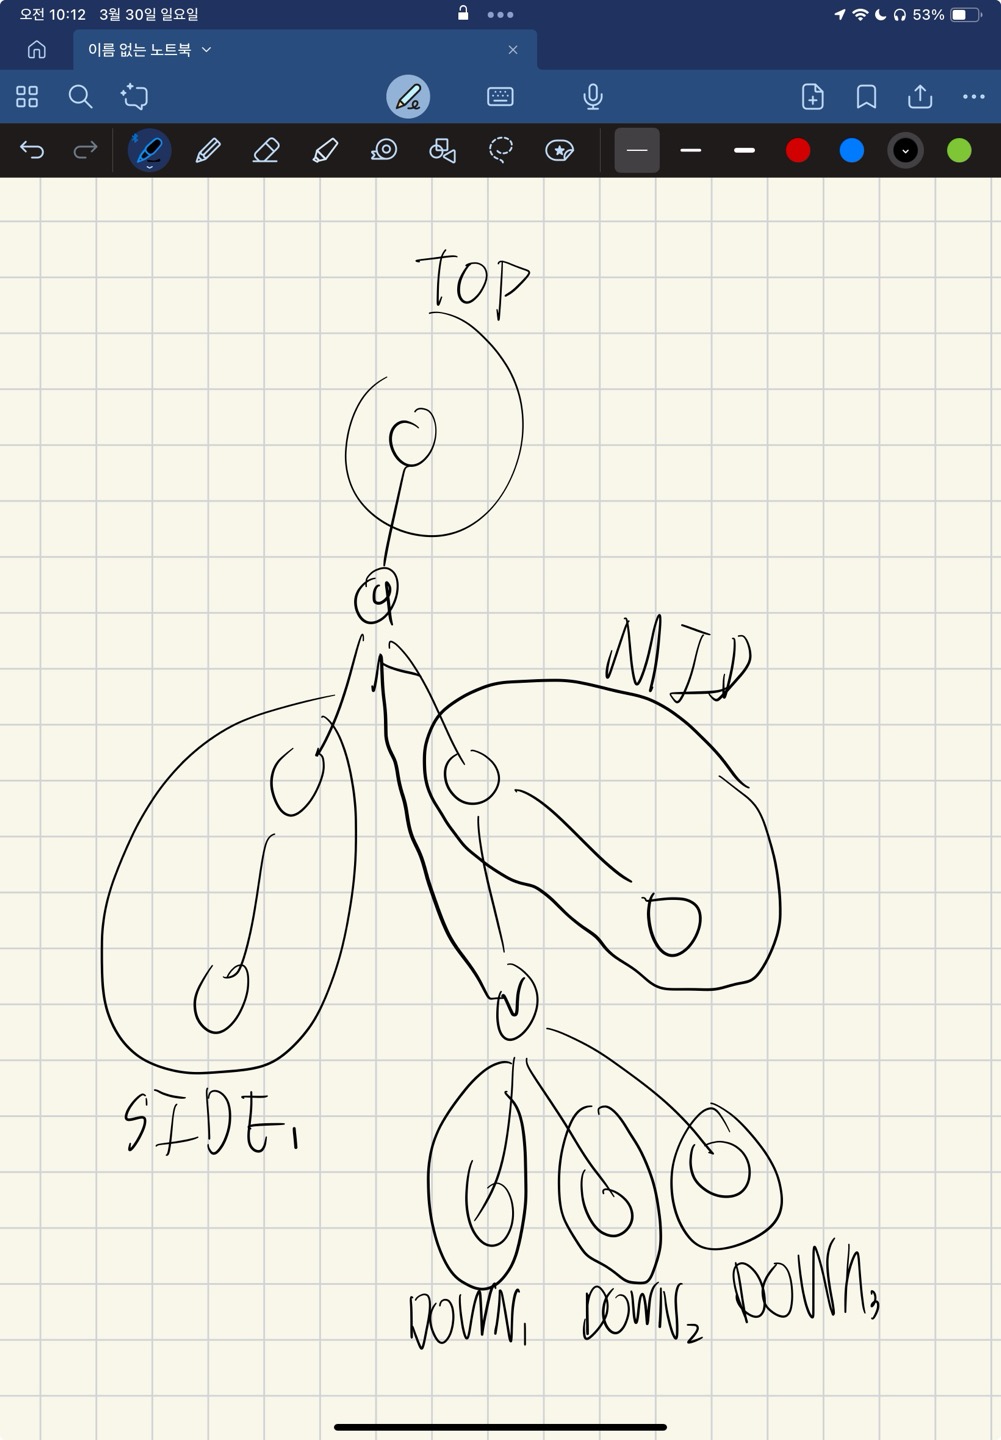 오전 10:12 3월 30일 일요일
53%
이름 없는 노트북
TOP
q
MID
v
SIDE₁
DOWN₁
DOWN₂
DOWN₃